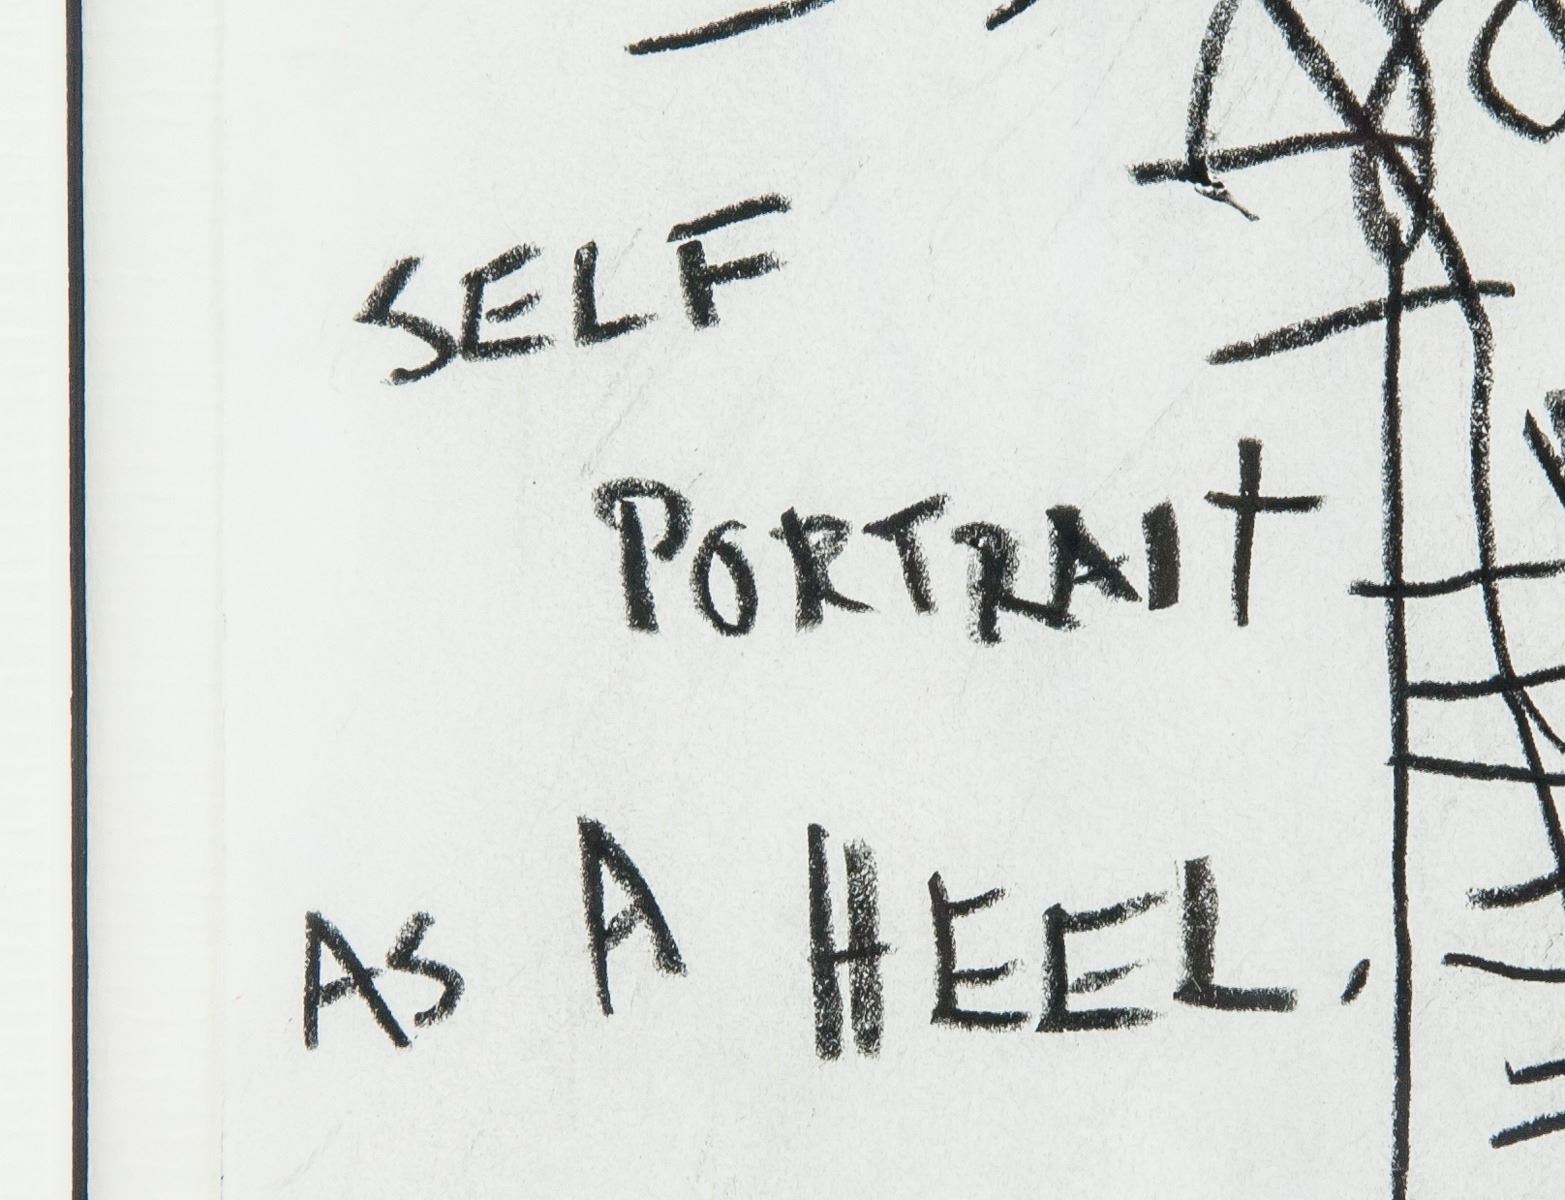 SELF
PORTRAIT
AS A HEEL.